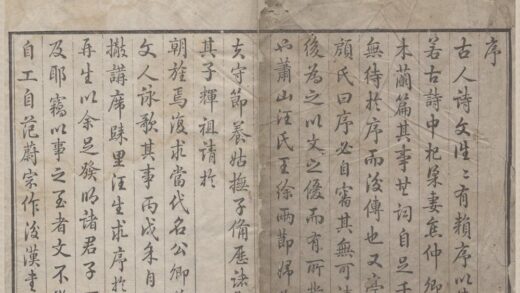 序
古人詩文徃〻有賴序以
若古詩中杞梁妻焦仲卿
木蘭篇其事其詞自足千
無待於序而後傳也又
顧氏曰序必自審其無可
後為之以文之優而有所
蕭山汪氏王徐兩節婦
夫守節養姑撫子備歷諸
其子輝祖請於
朝旌焉復求當代名公卿
文人詠歌其事丙戌冬自
撤講席睐里汪生求序於
再生以余足發明諸君子
及耶竊以事之至者文不
自工自范蔚宗作後漢書